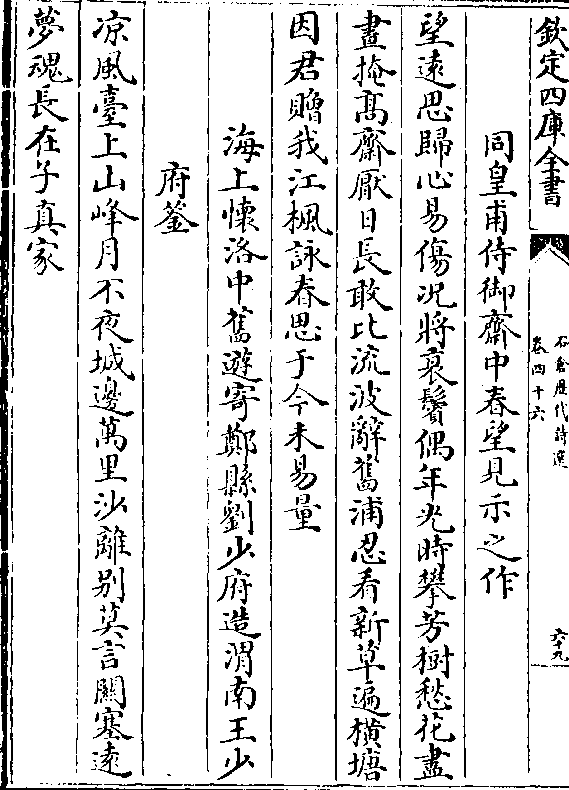 欽定四庫全書
石倉歷代詩選
卷四十六
六十九
同皇甫侍御齋中春望見示之作
望遠思歸心易傷况將衰鬢偶年光時攀芳樹愁花盡
晝掩髙齋厭日長敢比流波辭舊浦忍看新草遍橫塘
因君贈我江楓詠春思于今未易量
海上懷洛中舊遊寄鄭縣劉少府造渭南王少
府鋆
凉風臺上山峰月不夜城邊萬里沙離别莫言關塞逺
夢魂長在子真家